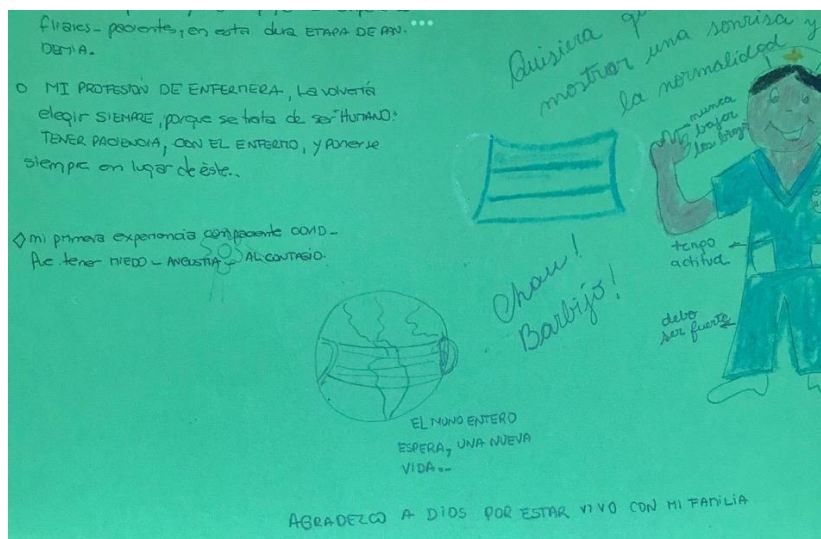 familiares - pacientes, en esta dura ETAPA DE PAN-
DEMIA.
MI PROFESIÓN DE ENFERMERA, La volvería
elegir SIEMPRE, porque se trata de ser "HUMANO".
TENER PACIENCIA, CON EL ENFERMO, y ponerse
siempre en lugar de éste..
mi primera experiencia con paciente COVID-
Fue tener MIEDO - ANGUSTIA - AL CONTAGIO.
Quisiera
mostrar una sonrisa y
la normalidad
nunca
bajar
los brazos
tengo
actitud
debo
ser fuerte
Chau!
Barbijo!
EL MUNO ENTERO
ESPERA, UNA NUEVA
VIDA..-
AGRADEZCO A DIOS POR ESTAR VIVO CON MI FAMILIA